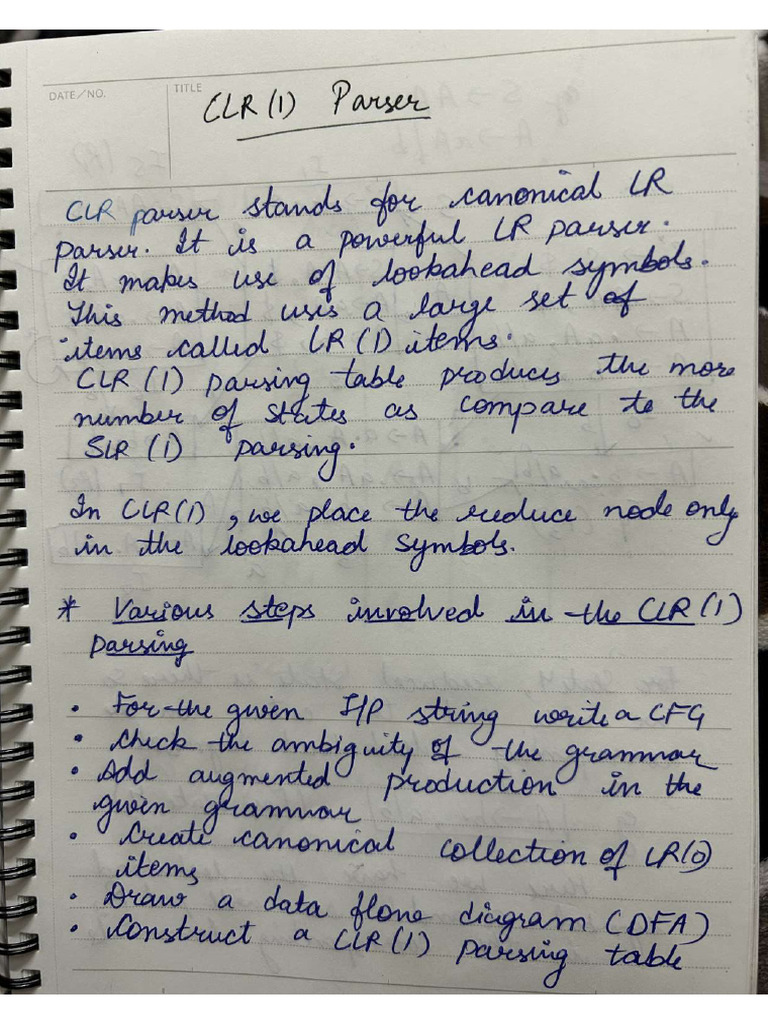 DATE/NO.
TITLE
CLR(1) Parser
CLR parser stands for canonical LR
parser. It is a powerful LR parser.
It makes use of lookahead symbols.
This method uses a large set of
items called LR(1) items.
CLR (1) parsing table produces the more
number of states as compare to the
SLR (1) parsing.
In CLR(1), we place the reduce node only
in the lookahead symbols.
* Various steps involved in the CLR (1)
parsing
• For the given I/P string write a CFG
• Check the ambiguity of the grammar
• Add augmented production in the
given grammar
• Create canonical collection of LR(0)
items
• Draw a data flone diagram (DFA)
• Construct a CLR(1) parsing table